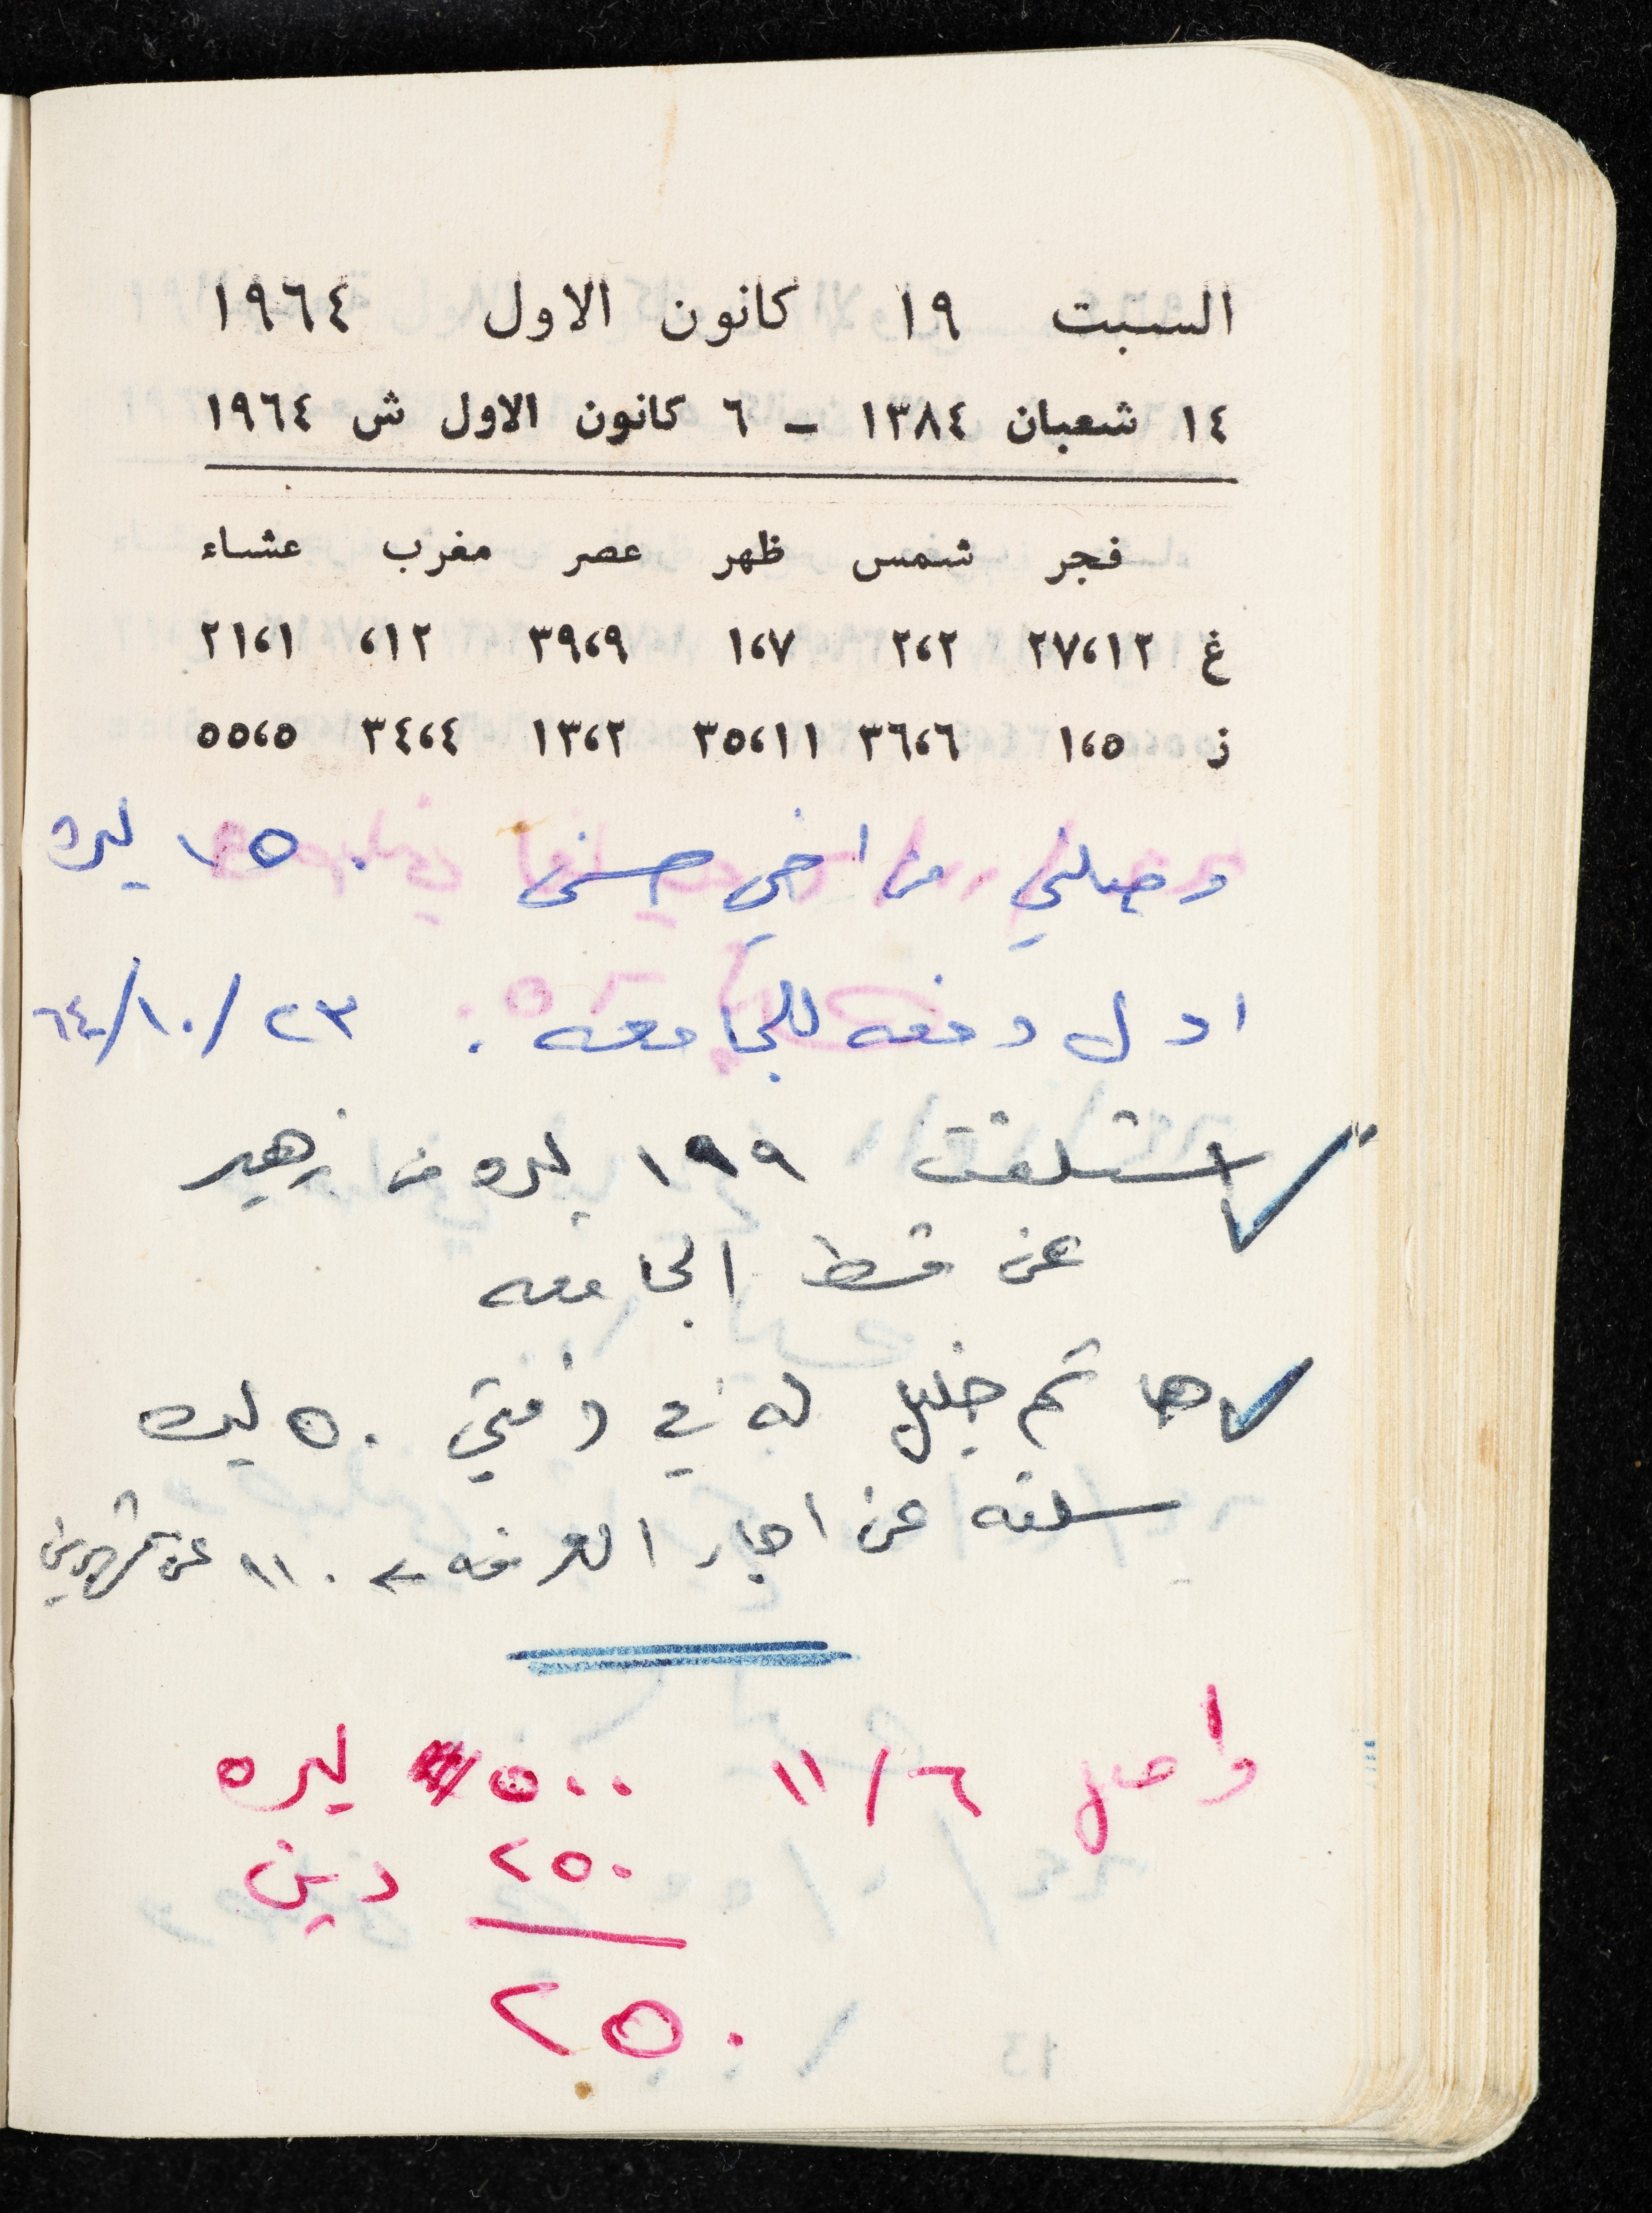 السبت ١٩ كانون الاول ١٩٦٤
١٤ شعبان ١٣٨٤ - ٦ كانون الاول ش ١٩٦٤
فجر شمس ظهر عصر مغرب عشاء
غ ٢٧،١٢ ٢،٢ ١،٧ ٣٩،٩ ،١٢ ٢١،١
ز ١،٥ ٣٦،٦ ٣٥،١١ ١٣،٢ ٣٤،٤ ٥٥،٥
وصلني من اخي حسني ١٥٠ ليره
اول دفعه للجامعه : ٢٣/١٠/٦٤
استلفت ١٩٩ ليره من زهير
عن قسط الجامعه
حاتم خليل له في ذمتي ٥٠ ليره
سلفه عن اجار الغرفه ← ١١٠ عن شهرين
واصل ٦/١١ ٥٠٠ ليره
٢٥٠ دين
٢٥٠